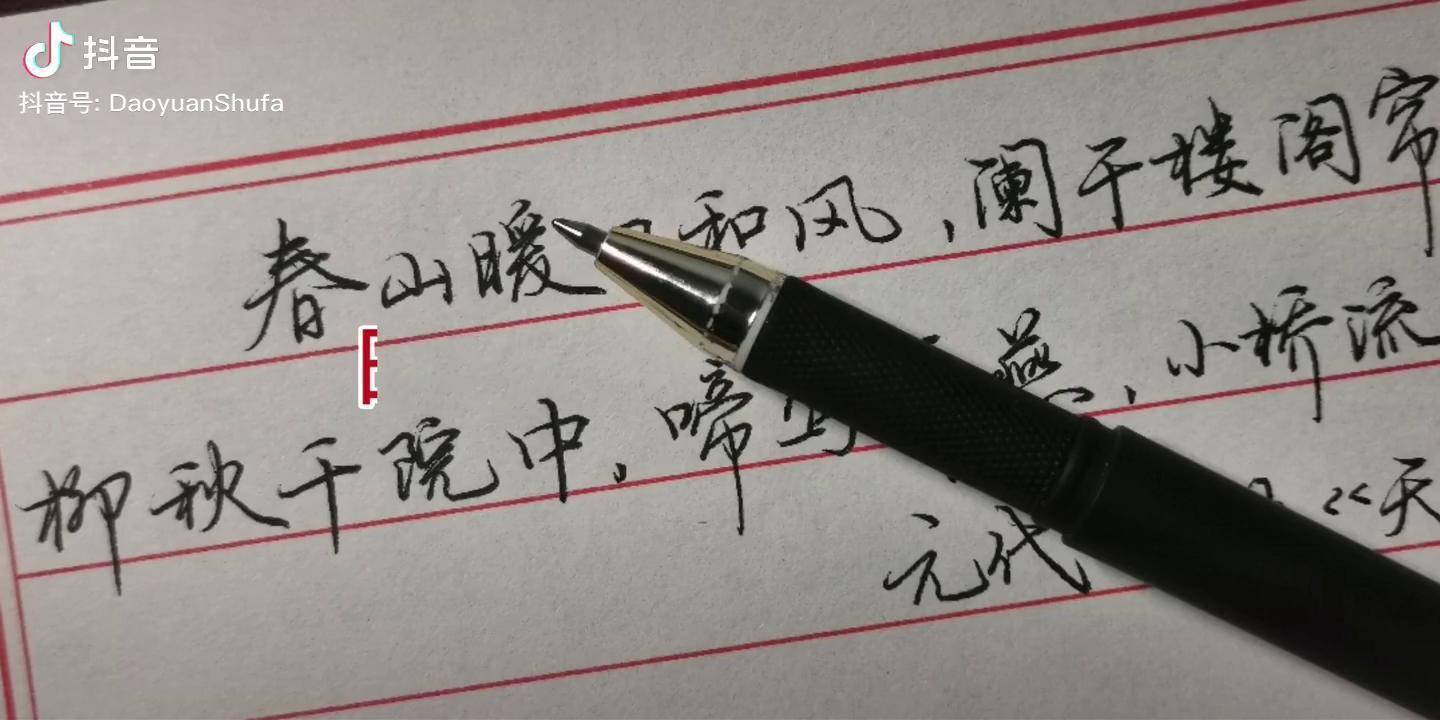 抖音
抖音号: DaoyuanShufa
春山暖 和风,阑干楼阁帘
柳秋千院中,啼 燕,小桥流
元代 《天